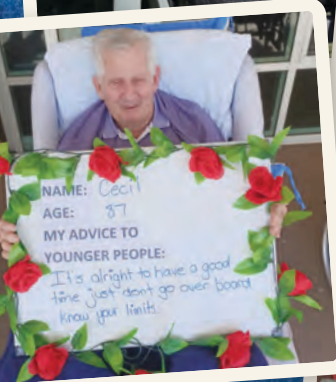 NAME: Cecil
AGE: 87
MY ADVICE TO
YOUNGER PEOPLE:
It's alright to have a good
time just dont go over board
know your limits.